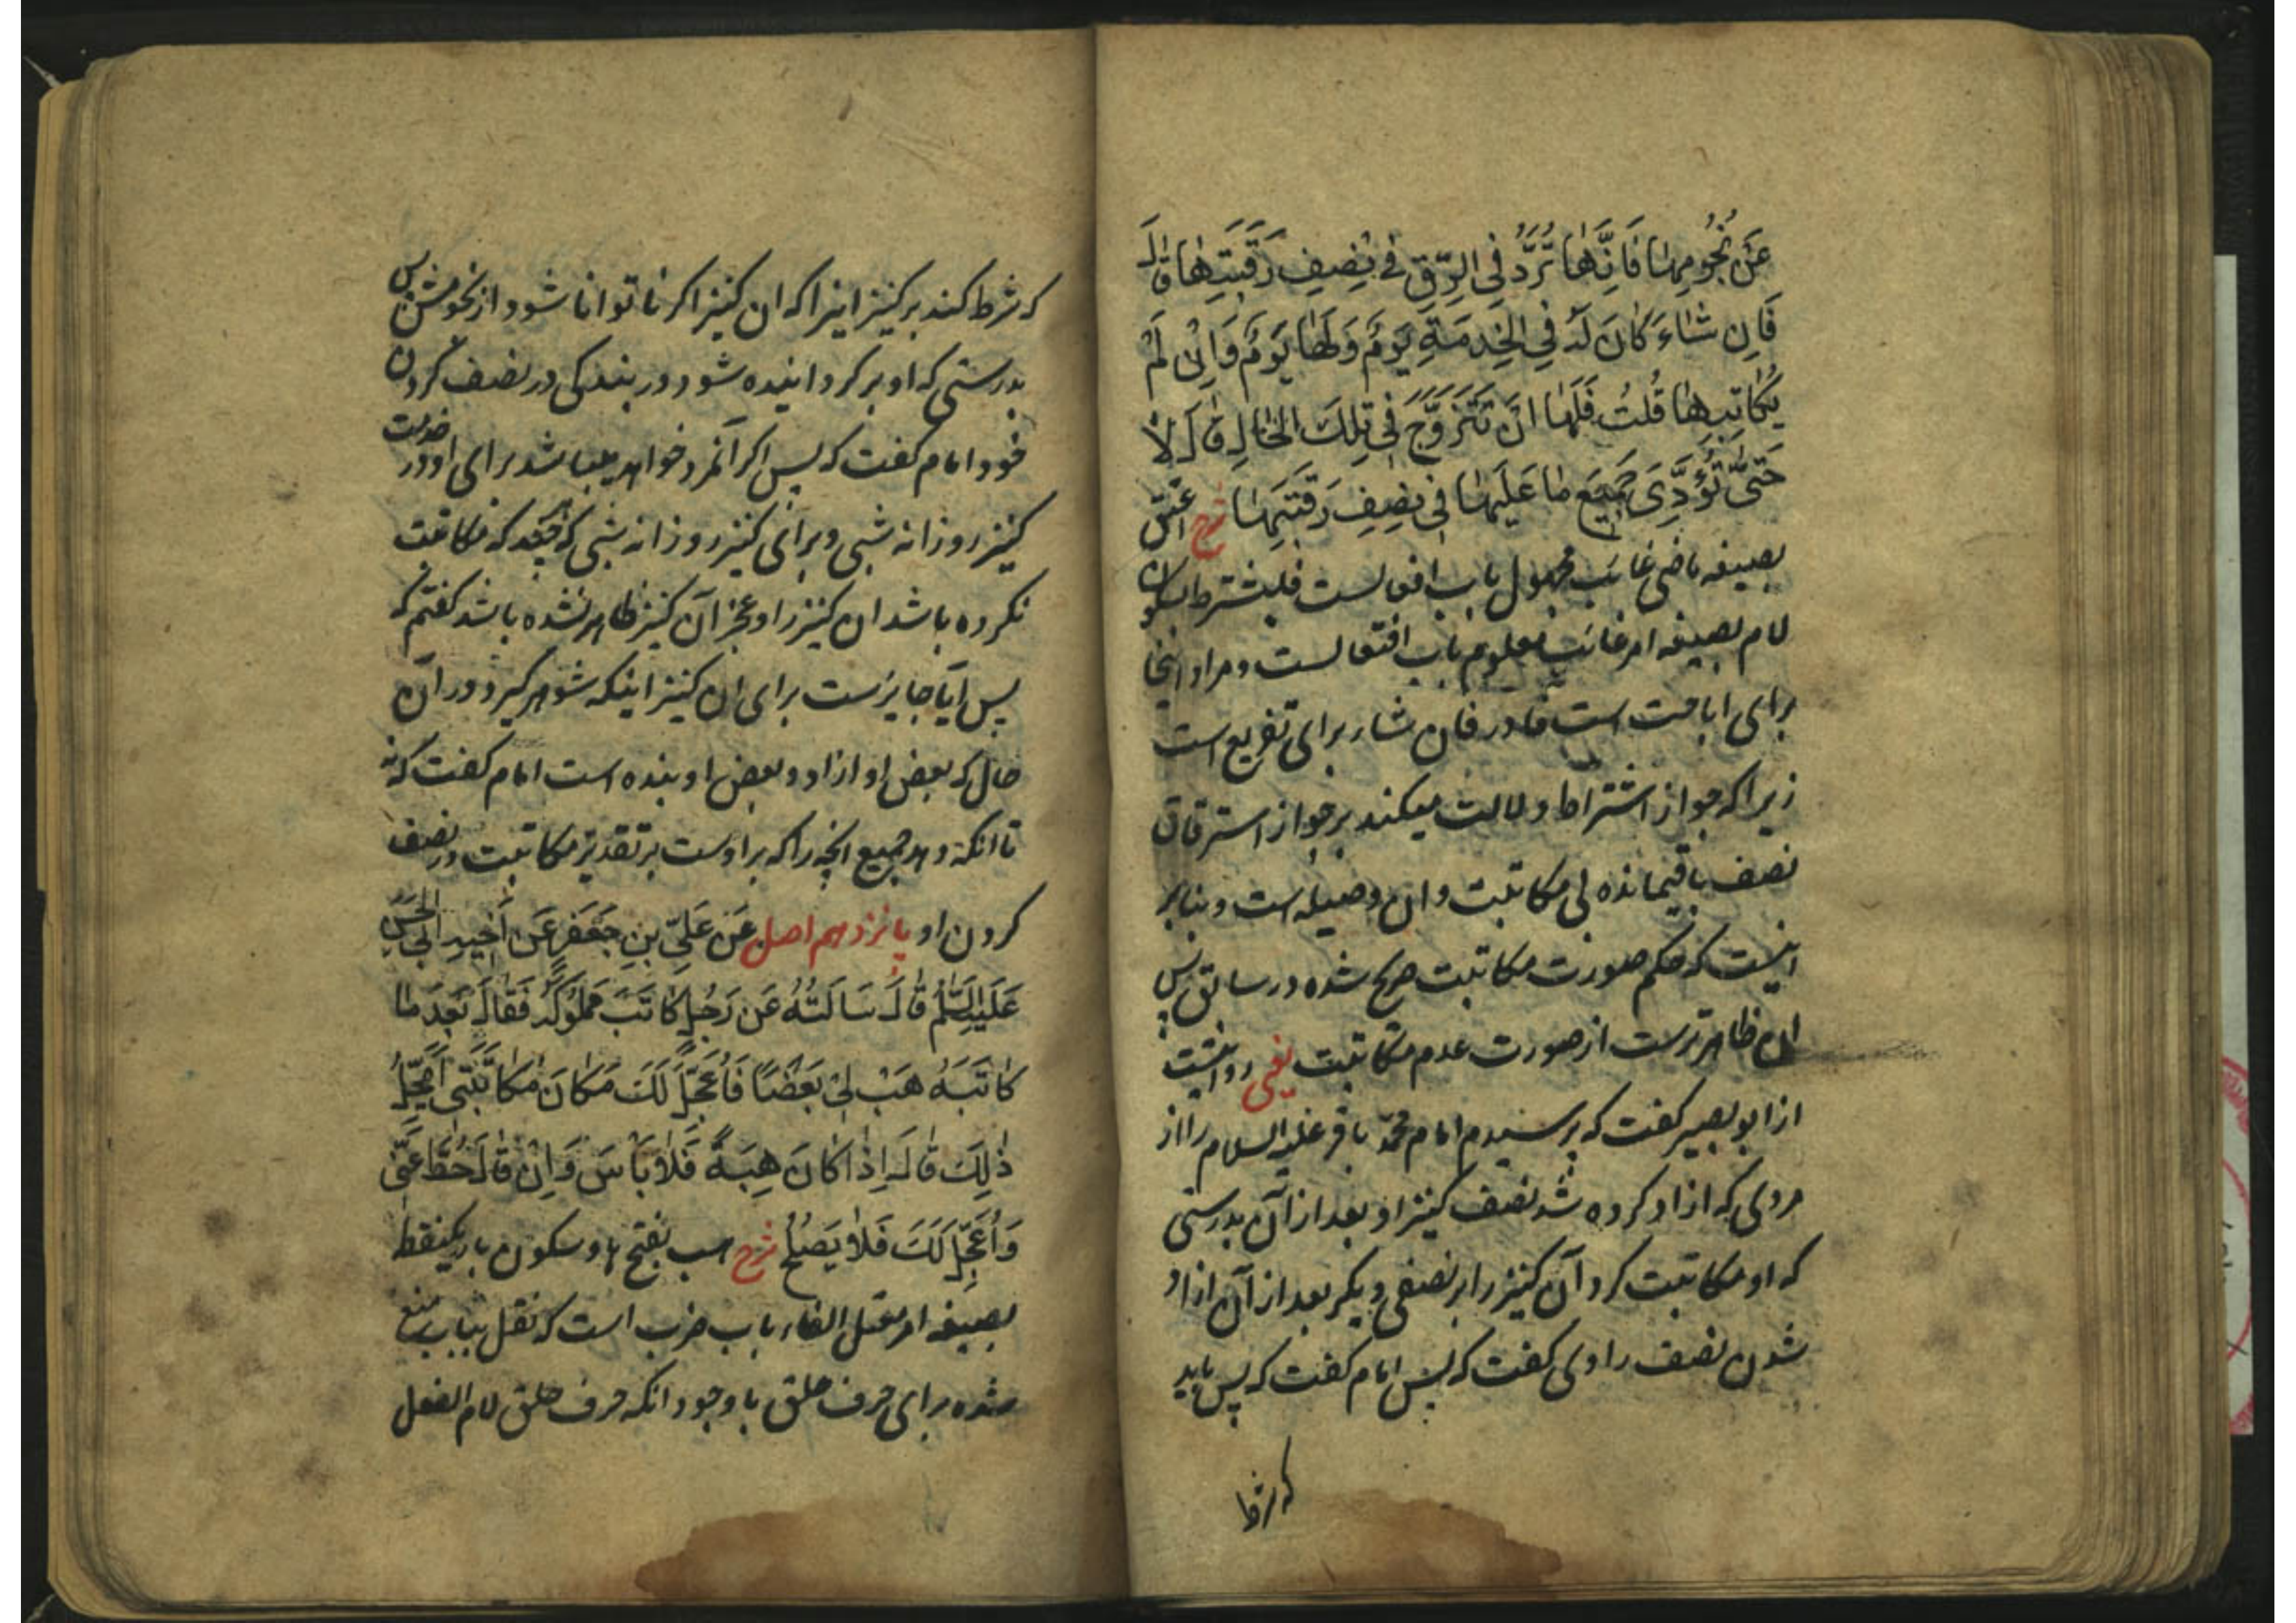 عَنْ نُجُومِهَا فَاِنَّهَا تُرَدُّ فِي الرِّقِّ فِي نِصْفِ رَقَبَتِهَا قَالَ
فَاِنْ شَاءَ كَانَ لَهُ فِي الْخِدْمَةِ يَوْمٌ وَلَهَا يَوْمٌ وَاِنْ لَمْ
يُكَاتِبْهَا قُلْتُ فَلَهَا اَنْ تَتَزَوَّجَ فِي تِلْكَ الْحَالِ قَالَ لَا
حَتّٰى تُؤَدِّيَ جَمِيعَ مَا عَلَيْهَا فِي نِصْفِ رَقَبَتِهَا شرح اعتق
بصیغه ماضی غائب مجهول باب افعالست فلیشترط بسکون
لام بصیغه امر غائب معلوم باب افتعالست و مراد اینجا
برای اباحت است فا در فان شاء برای تفریع است
زیرا که جواز اشتراط دلالت میکند بر جواز استرقاق
نصف باقیمانده بی مکاتبت وان وصیله است و بنابر
اینست که حکم صورت مکاتبت صریح شده در سابق پس
ان ظاهرترست از صورت عدم مکاتبت یعنی روایتست
از ابوبصیر کفت که پرسیدم امام محمد باقر علیه السلام را از
مردی که ازاد کرده شد نصف کنیز او بعد از آن بدرستی
که او مکاتبت کرد آن کنیز را بر نصفی دیکر بعد از آن ازاد
شدن نصف راوی کفت که پس امام کفت که پس باید
که شرط
که شرط کند بر کنیز اینرا که ان کنیز اکر ناتوانا شود از نجومش پس
بدرستی که او بر کردانیده شود در بندکی در نصف کردن
خود امام کفت که پس اکر آنمرد خواهد میباشد برای او در خدمت
کنیز روزانه شبی و برای کنیز روزانه شبی که مکاتبت
نکرده باشد ان کنیز را و عجز آن کنیز ظاهر نشده باشد کفتم که
پس ایا جایزست برای ان کنیز اینکه شوهر کیرد در آن
حال که بعض او ازاد و بعض او بنده است امام کفت که نه
تا انکه دهد جمیع انچه را که بر اوست بر تقدیر مکاتبت در نصف
کردن او پانزدهم اصل عَنْ عَلِيِّ بْنِ جَعْفَرٍ عَنْ اَخِيهِ اَبِي الْحَسَنِ
عَلَيْهِ السَّلٰمُ قَالَ سَاَلْتُهُ عَنْ رَجُلٍ كَاتَبَ مَمْلُوكَهُ فَقَالَ بَعْدَ مَا
كَاتَبَهُ هَبْ لِي بَعْضًا فَاُعَجِّلَ لَكَ مَكَانَ مُكَاتَبَتِي اَيَحِلُّ
ذٰلِكَ قَالَ اِذَا كَانَ هِبَةً فَلَا بَأْسَ وَاِنْ قَالَ حُطَّ عَنِّي
وَاُعَجِّلَ لَكَ فَلَا يَصْلُحُ شرح هب بفتح ها و سکون باء یکنقطه
بصیغه امر معتل الفاء باب ضرب است که نقل بباب منع
شده برای حرف حلق با وجود انکه حرف حلق لام الفعل